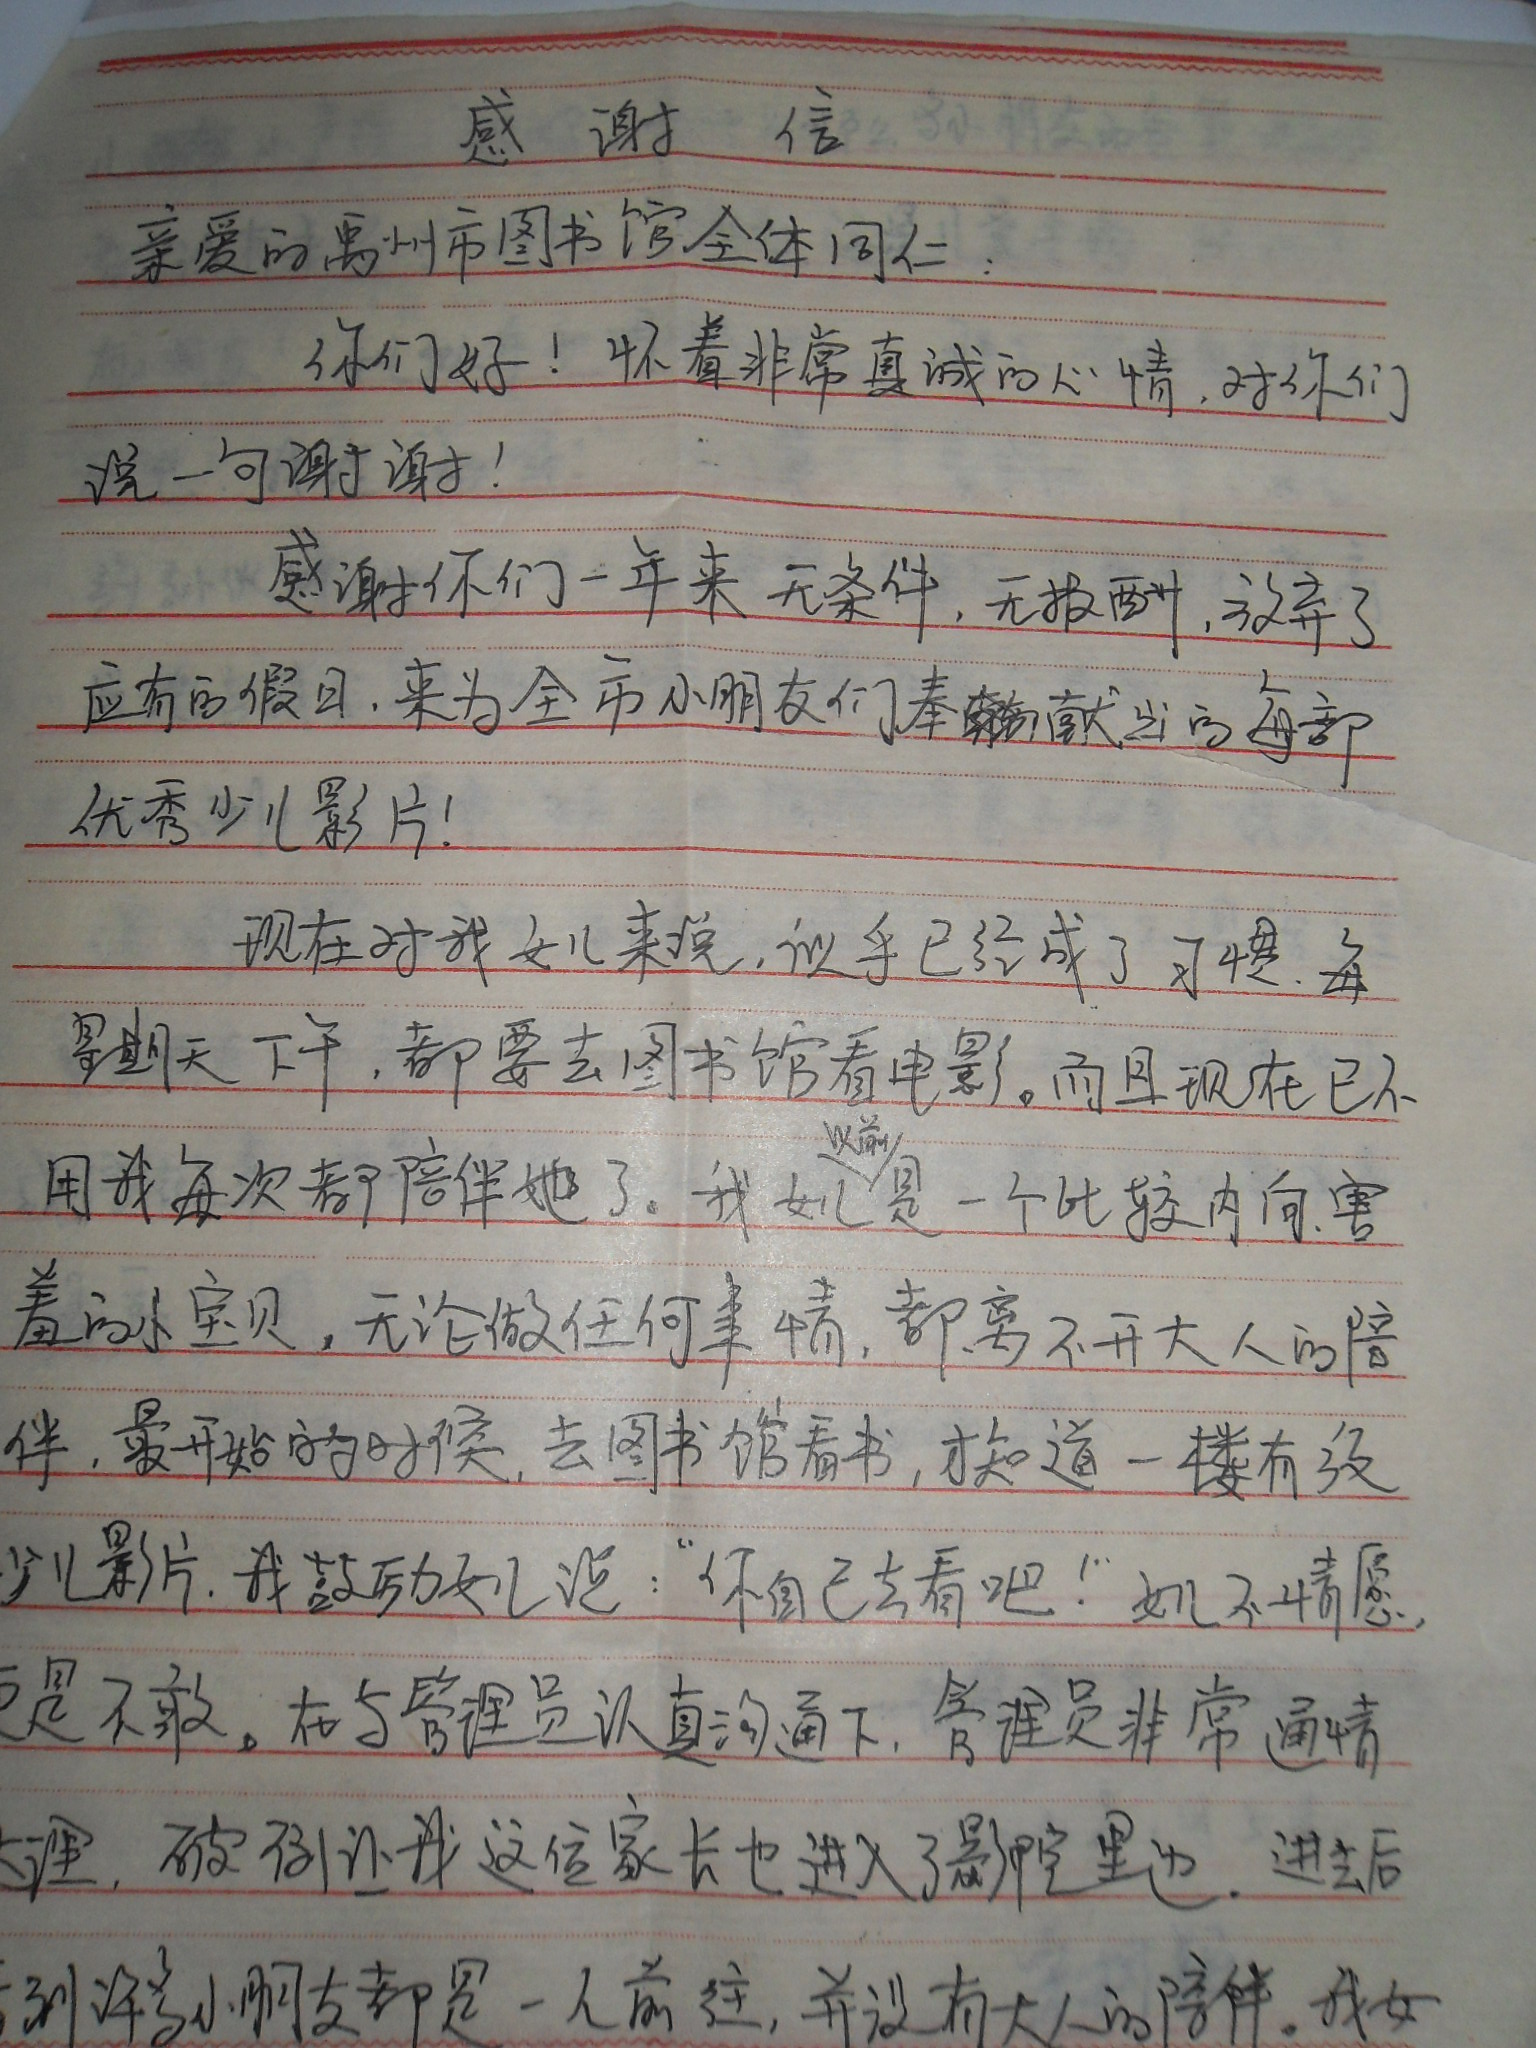 感谢信
亲爱的禹州市图书馆全体同仁：
你们好！怀着非常真诚的心情，对你们
说一句谢谢！
感谢你们一年来无条件，无报酬，放弃了
应有的假日，来为全市小朋友们奉献出的每部
优秀少儿影片！
现在对我女儿来说，似乎已经成了习惯，每
星期天下午，都要去图书馆看电影。而且现在已不
用我每次都陪伴她了。我女儿以前是一个比较内向、害
羞的小宝贝，无论做任何事情，都离不开大人的陪
伴，最开始的时候，去图书馆看书，才知道一楼有放
少儿影片，我鼓励女儿说：“你自己去看吧！”女儿不情愿，
更是不敢。在与管理员认真沟通下，管理员非常通情
达理，破例让我这位家长也进入了影院里边，进去后
看到许多小朋友都是一人前往，并没有大人的陪伴。我女